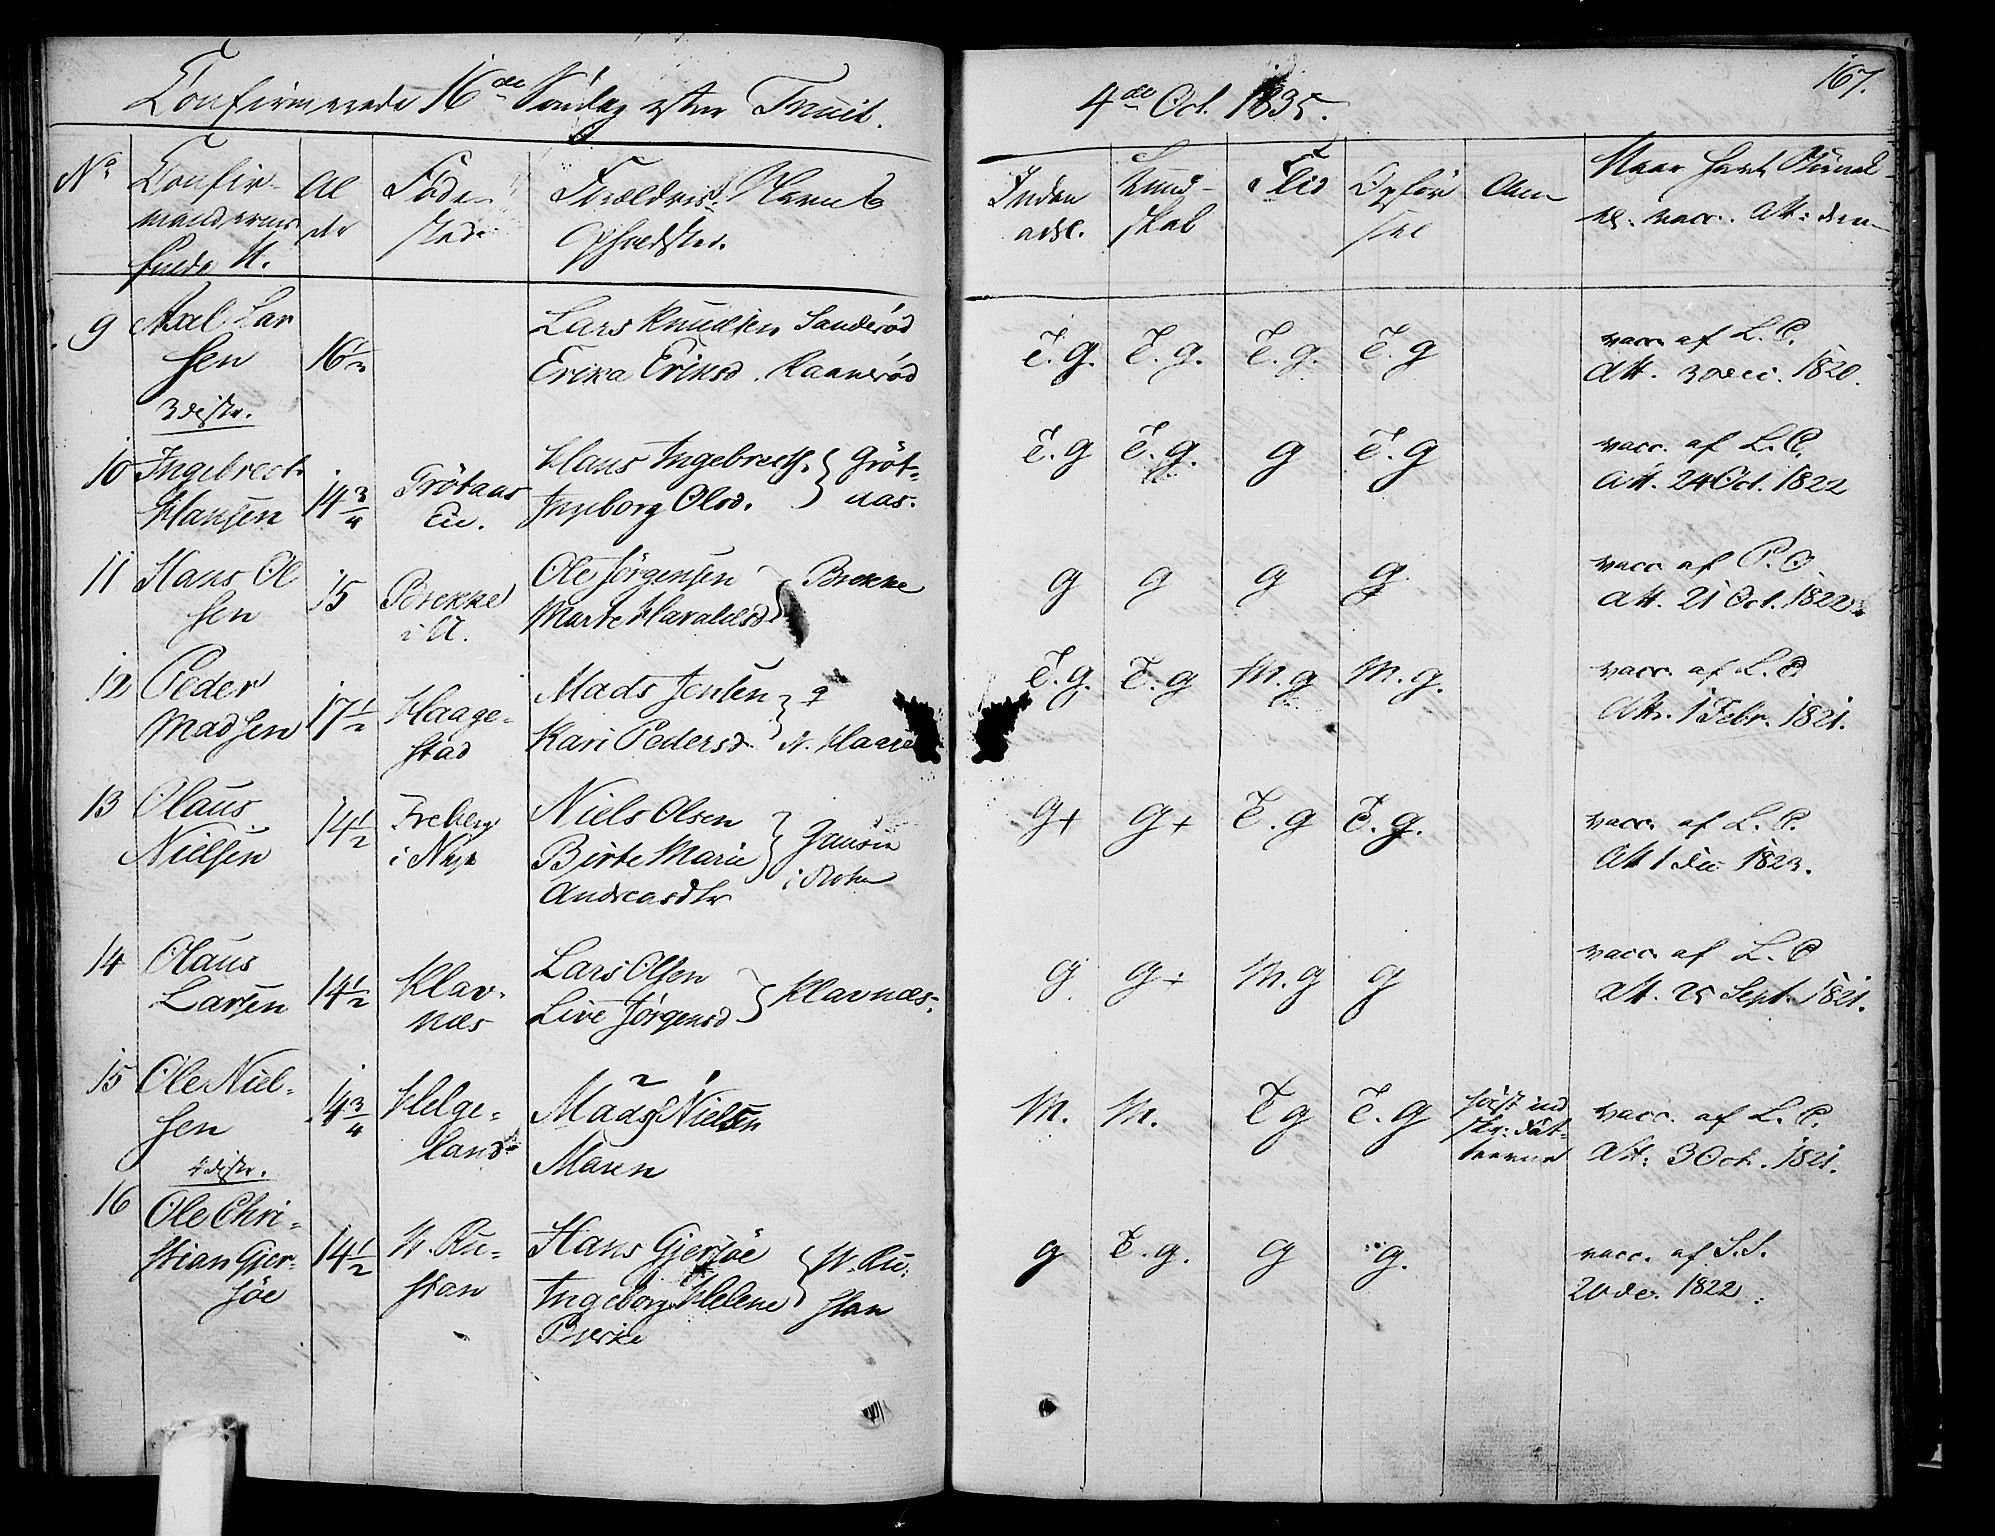 Confirmerede 16de Søndag efter Trinit.
4de Oct. 1835.
167.
No
Confir-
mandernes
fulde N.
Al
der
Føde-
sted
Forældres Navne &
Opholdsted.
Inden
adsl.
Kund-
skab
Flid
Opfør
sel
Anm
Naar havt Naturl
el. vacc. Att: den
9
Axel Lar
sen
16½
Lars Knudsen Sanderød
Erika Eriksd. Raanerød
T. g.
T. g.
T. g.
T. g
vacc. af L. C.
Att. 3 Dec. 1820.
3 distr.
10
Ingebrect
Hansen
14¾
Grøtaas
Eie.
Hans Ingebrects.
Ingeborg Olsd.
Grøt-
aas.
T. g
T. g.
g
T. g
vacc. af L. C.
Att. 24 Oct. 1822
11
Hans Ol
sen
15
Brekke
i U.
Ole Jørgensen
Marte Haraldsd
Brekke
g
g
g
g
vacc. af P. O.
Att. 21 Oct. 1822.
12
Peder
Madsen
17½
Haage-
stad
Mads Jensen
Kari Pedersd.
N.
T. g.
T. g
M. g
M. g.
vacc. af L. C
Att. 1 Febr. 1821.
13
Olaus
Nielsen
14½
Freberg
i
Niels Olsen
Birte Marie
Andreasdtr
i
g+
g+
T. g
T. g.
vacc. af L. C.
Att 1 Dec 1823.
14
Olaus
Larsen
14½
Klav-
næs
Lars Olsen
Live Jørgensd
Klavnæs
g
g+
M. g
g
vacc. af L. C
Att. 25 Sept. 1821.
15
Ole Niel-
sen
14¾
Helge-
land
2 1
Mads Nielsen
Maren
M.
M.
T g
T. g
først ind
vacc. af L. C.
Att: 3 Oct. 1821.
4 distr.
16
Ole Chri-
stian Gjer-
søe
14½
N. Ru-
stan
Hans Gjersøe
Ingeborg Helene
Bjerke
N. Ru-
stan
g
T. g.
g
g.
vacc. af S. S.
20 de. 1822.